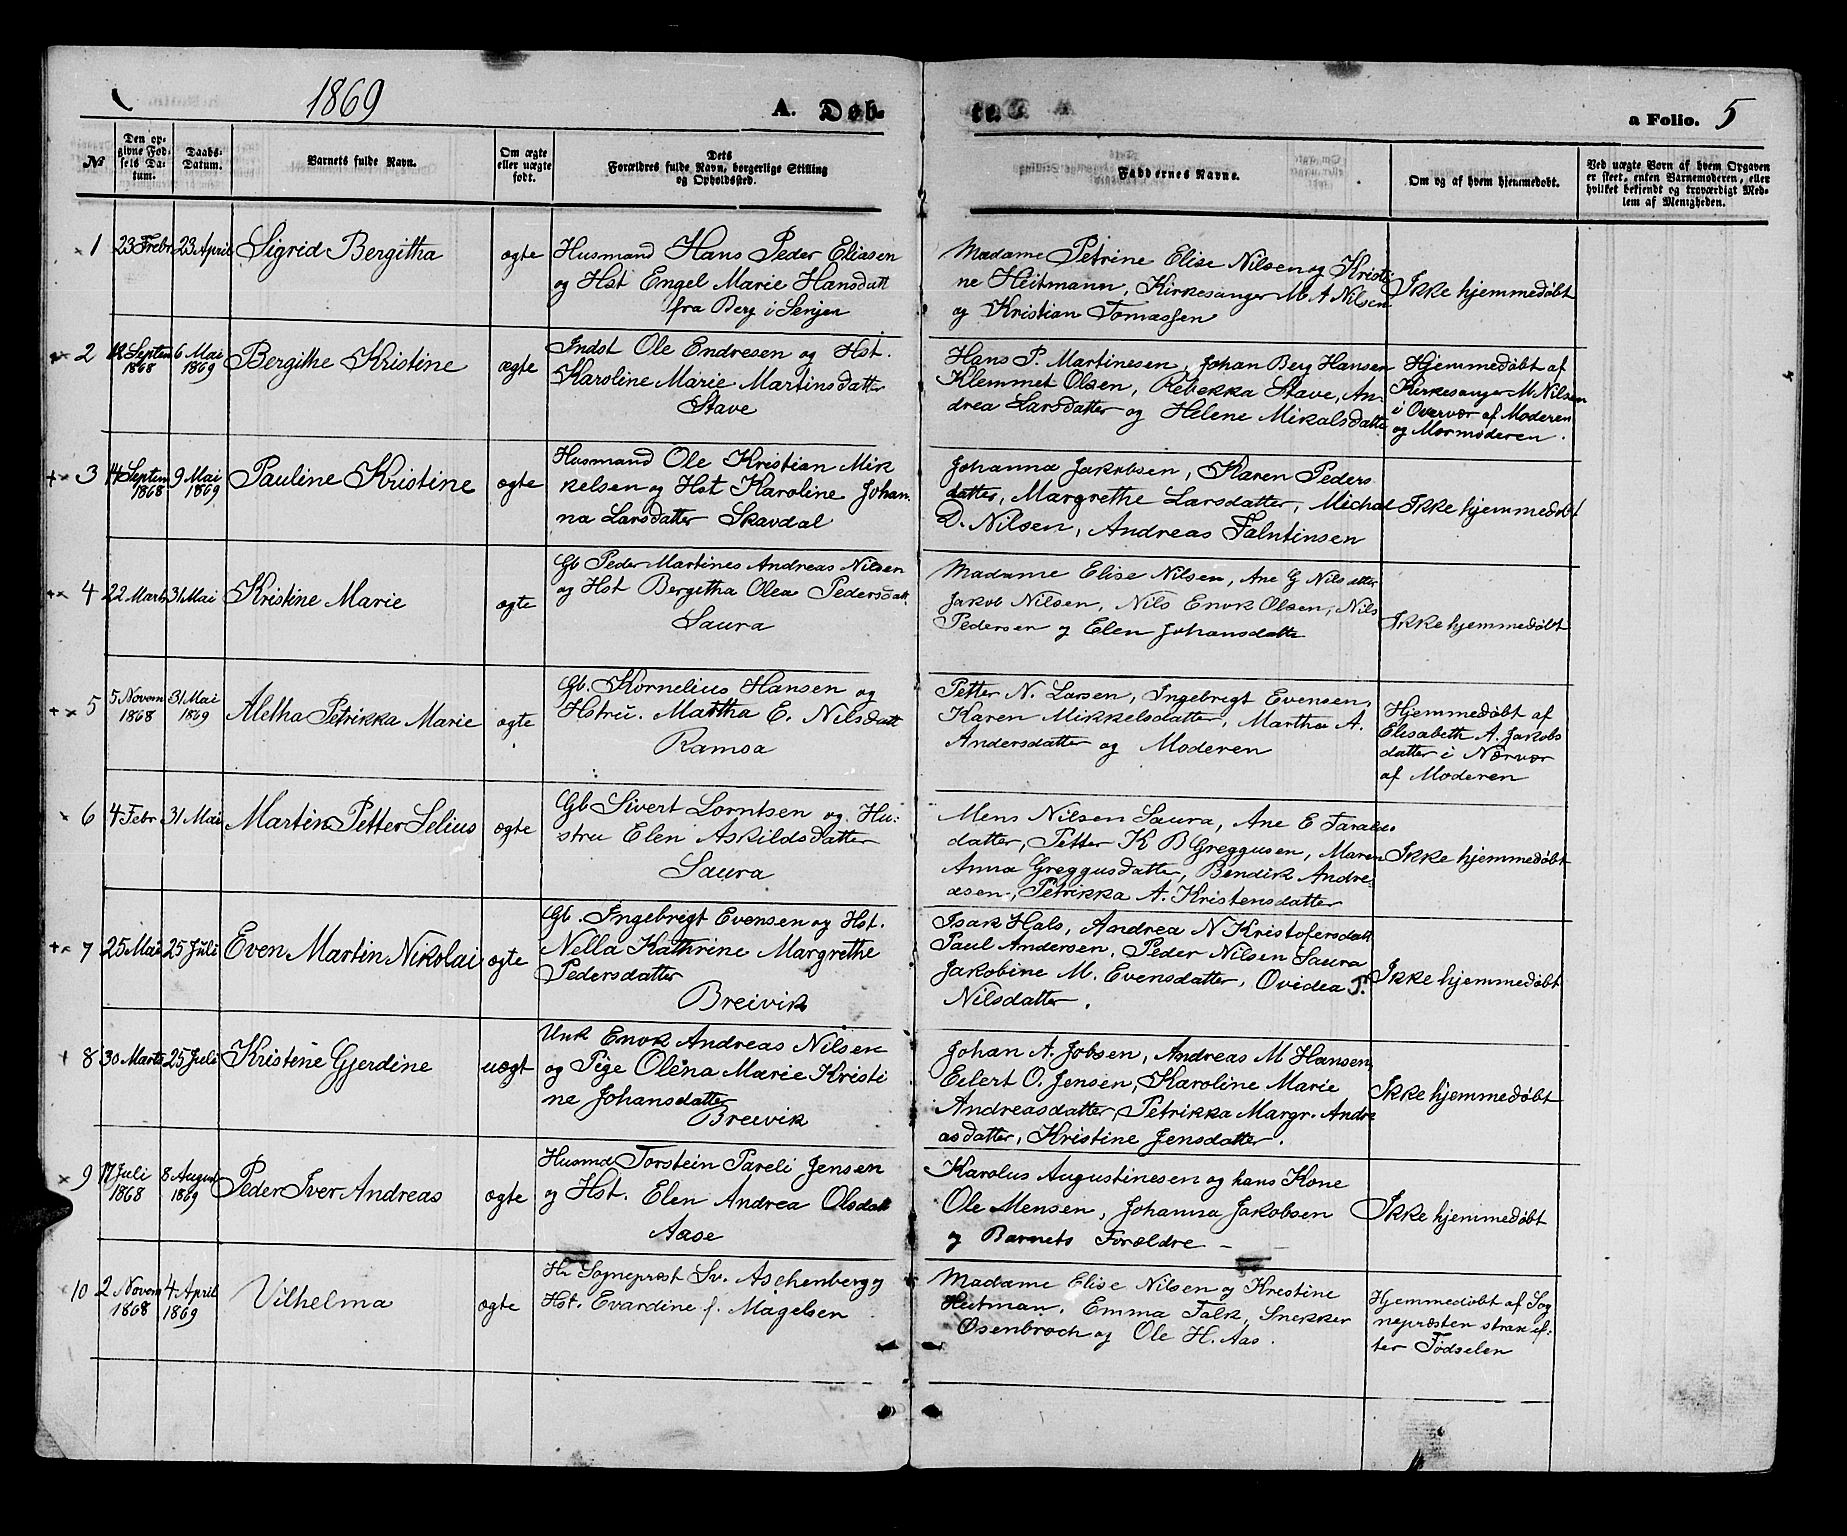 1869
A. Døb-
te.
a Folio. 5
№
Den op-
givne Fød-
sels Da-
tum.
Daabs-
Datum.
Barnets fulde Navn.
Om ægte
eller uægte
født.
Dets
Forældres fulde Navn, borgerlige Stilling
og Opholdssted.
Faddernes Navne.
Om og af hvem hjemmedøbt.
Ved uægte Børn af hvem Opgaven
er skeet, enten Barnemoderen, eller
hvilket bekjendt og troværdigt Med-
lem af Menigheden.
1 23 Febr 23 April Sigrid Bergitha ægte
Husmand Hans Peder Eliasen
og Hst Engel Marie Hansdatt
fra Berg i Senjen
Madame Petrine Elise Nilsen og Kristi
ne Heitmann, Kirkesanger M A Nilsen
og Kristian Tomassen
Ikke hjemmedøbt
2 12 Septem 1868 6 Mai 1869 Bergithe Kristine ægte
Indst Ole Endresen og Hst.
Karoline Marie Martinsdatter
Stave
Hans P. Martinesen, Johan Berg Hansen
Klemmet Olsen, Rebekka Stave, An-
drea Larsdatter og Helene Mikalsdatter
Hjemmedøbt af
Kirkesanger M Nilsen
i Overvær af Moderen
og Mormoderen.
3 14 Septem 1868 9 Mai 1869 Pauline Kristine ægte
Husmand Ole Kristian Mik
kelsen og Hst Karoline Johan
na Larsdatter Skavdal
Johanna Jakobsen, Karen Peders
datter, Margrethe Larsdatter, Michal
D. Nilsen, Andreas Falntinsen
Ikke hjemmedøbt
4 22 Marts 31 Mai Kristine Marie ægte
Gb Peder Martines Andreas Nilsen
og Hst Bergitha Olea Pedersdatt.
Saura
Madame Elise Nilsen, Ane G Nilsdatter
Jakob Nilsen, Nils Enok Olsen, Nils
Pedersen og Elen Johansdatter
Ikke hjemmedøbt
5 5 Novem 1868 31 Mai 1869 Aletha Petrikka Marie ægte
Gb. Kornelius Hansen og
Hstru. Martha E. Nilsdatt
Ramsa
Petter N. Larsen, Ingebrigt Evensen,
Karen Mikkelsdatter, Martha A.
Andersdatter og Moderen
Hjemmedøbt af
Elisabeth A. Jakobs
datter i Nærvær
af Moderen
6 4 Febr 31 Mai Martin Petter Selius ægte
Gb Sivert Lorntsen og Hu-
stru Elen Askildsdatter
Saura
Mens Nilsen Saura, Ane E Taralds-
datter, Petter K B Greggusen, Maren
Anna Greggusdatter, Bendik Andre-
asen, Petrikka A. Kristensdatter
Ikke hjemmedøbt
7 25 Mai 25 Juli Even Martin Nikolai ægte
Gb. Ingebrigt Evensen og Hst.
Nella Kathrine Margrethe
Pedersdatter
Breivik
Isak Hals, Andrea N Kristofersdatt
Paul Andersen, Peder Nilsen Saura
Jakobine M. Evensdatter, Ovidea P.
Nilsdatter.
Ikke hjemmedøbt
8 30 Marts 25 Juli Kristine Gjerdine uægt
Unk Enok Andreas Nilsen
og Pige Olena Marie Kristi
ne Johansdatter
Breivik
Johan A. Jobsen, Andreas M Hansen
Eilert O. Jensen, Karoline Marie
Andreasdatter, Petrikka Margr. Andre
asdatter, Kristine Jensdatter.
Ikke hjemmedøbt
9 17 Juli 1868 8 August 1869 Peder Iver Andreas ægte
Husmd Torstein Pareli Jensen
og Hst. Elen Andrea Olsdatt
Aase
Karolus Augustinesen og hans Kone
Ole Mensen, Johanna Jakobsen
og Barnets Forældre –
Ikke hjemmedøbt
10 2 Novem 1868 4 April 1869 Vilhelma ægte
Hr Sognepræst Sv. Aschenberg og
Hst. Evardine f. Magelsen
Madame Elise Nilsen og Kristine
Heitman, Emma Falk, Snekker
Osenbroch og Ole H. Aas.
Hjemmedøbt af Sog
nepræsten strax ef-
ter Fødselen